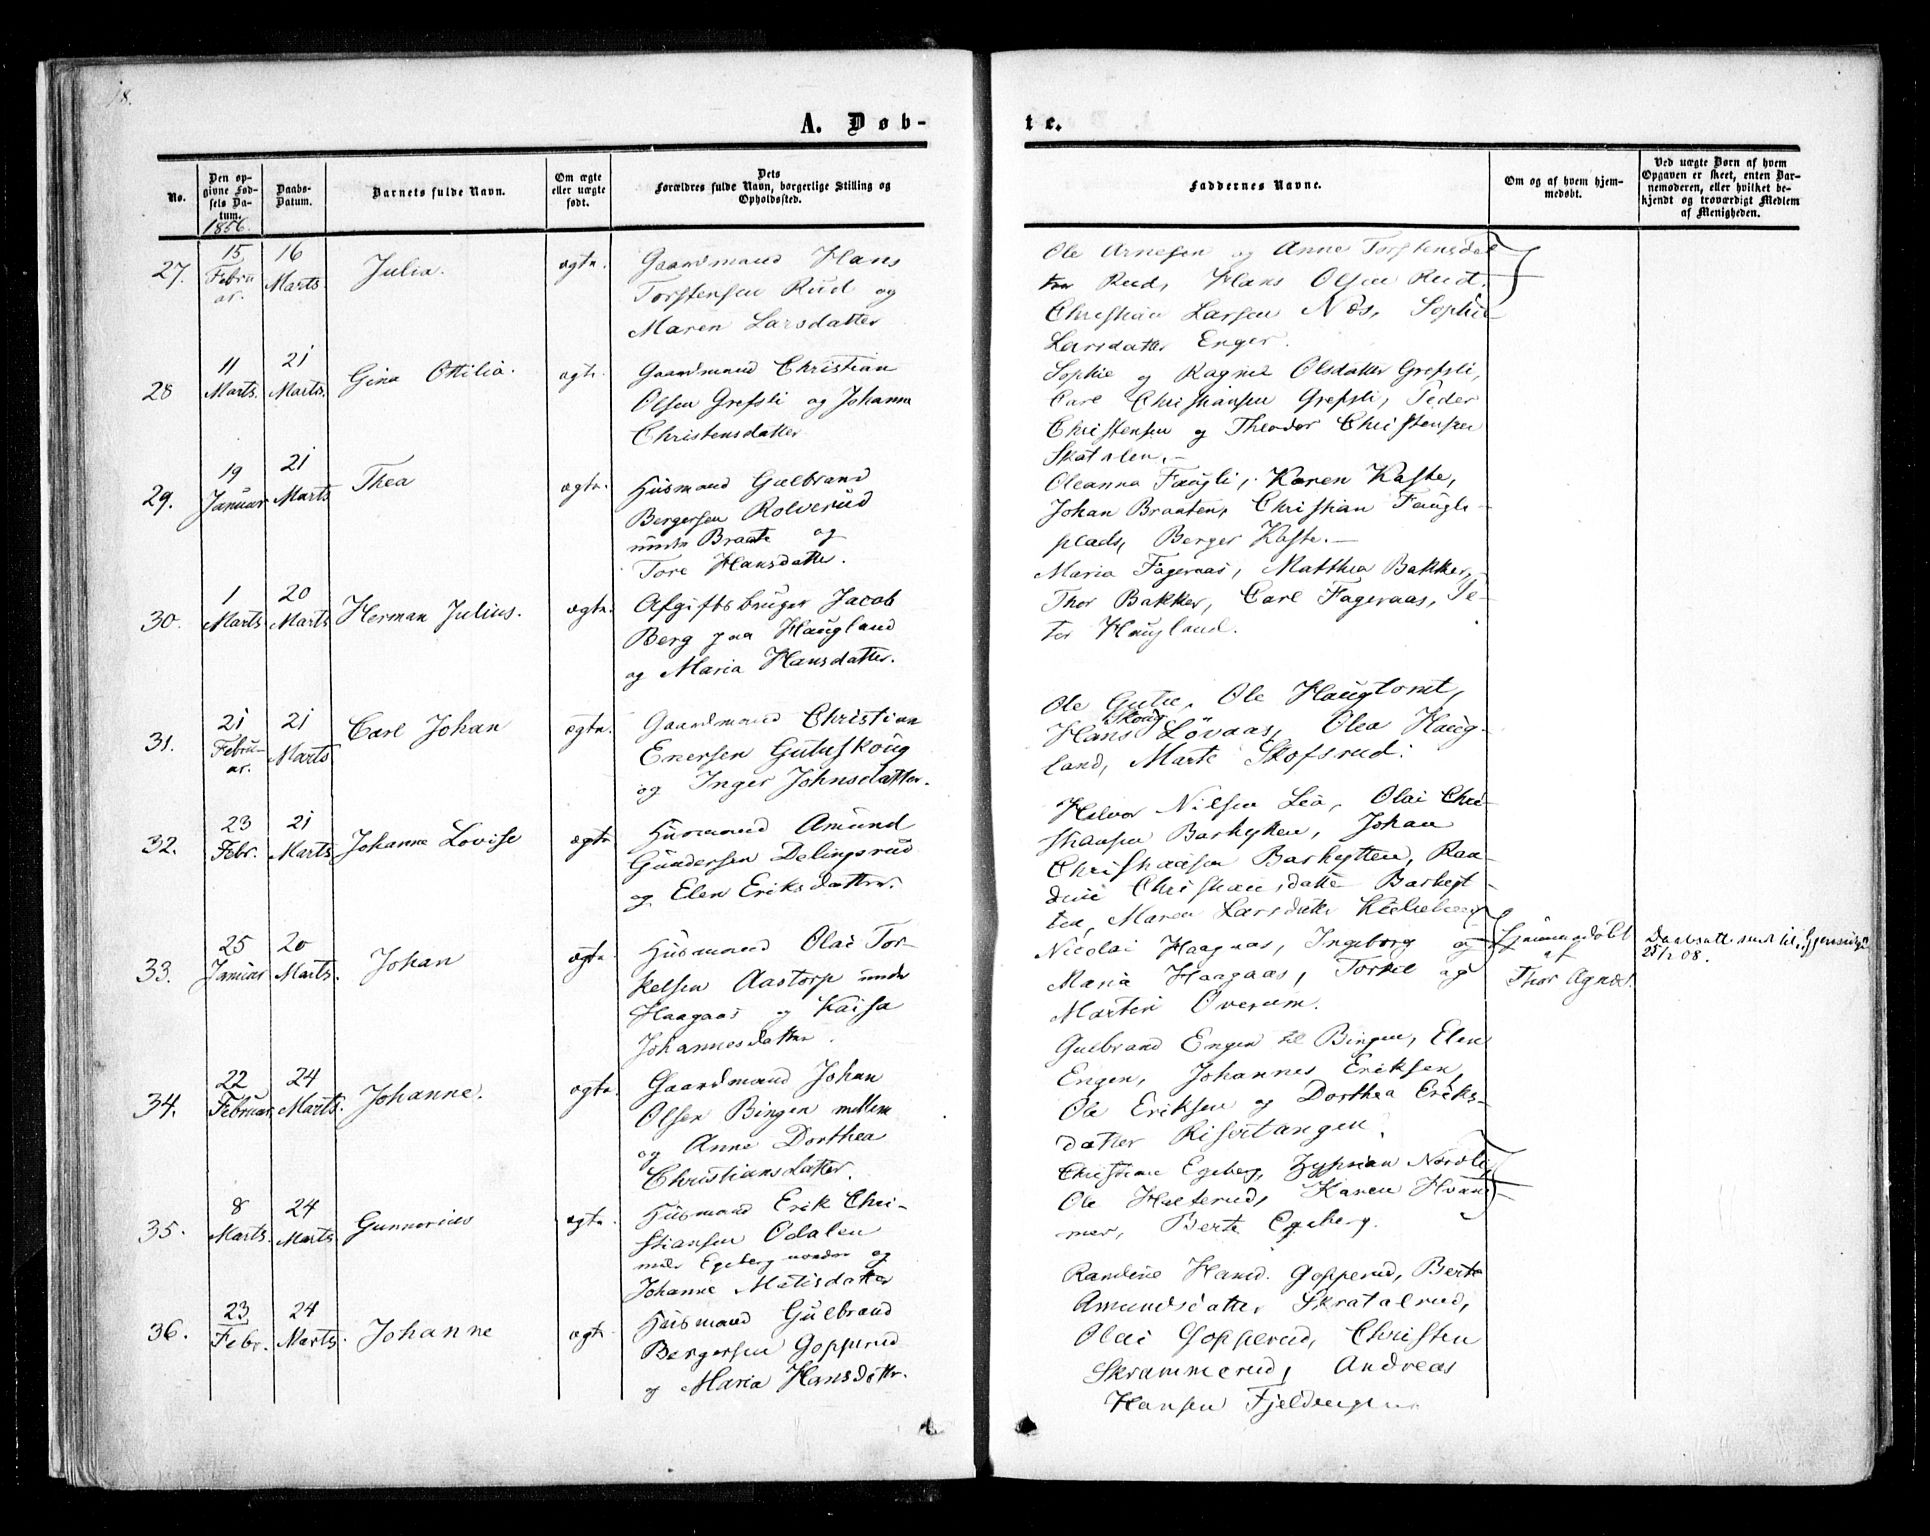 18.
A. Døb-
te.
No.
Den op-
givne Fød-
sels Da-
tum.
1856.
Daabs-
Datum.
Barnets fulde Navn.
Om ægte
eller uægte
født.
Dets
Forældres fulde Navn, borgerlige Stilling og
Opholdssted.
Faddernes Navne.
Om og af hvem hjem-
medøbt.
Ved uægte Børn af hvem
Opgaven er skeet, enten Bar-
nemoderen, eller hvilket be-
kjendt og troværdigt Medlem
af Menigheden.
27.
15
Febru
ar.
16
Marts.
Julia.
ægte.
Gaardmand Hans
Torstensen Rud og
Maren Larsdatter
Ole Arnesen og Anne Torstensdat
ter Rud, Hans Olsen Rud.
Christian Larsen Næs, Sophie
Larsdatter Enger.
28
11
Marts.
21
Marts.
Gina Ottilia.
ægte.
Gaardmand Christian
Olsen Grefsli og Johanne
Christensdatter
Sophie og Ragne Olsdatter Grefsli,
Carl Christiansen Grefsli, Peder
Christensen og Theodor Christensen
Skatalen.
29.
19
Januar
21
Marts
Thea
ægte.
Husmand Gulbrand
Bergersen Rolverud
under Braate og
Tore Hansdatter.
Oleanna Faugli, Karen Kaste,
Johan Braaten, Christian Faugli-
plads, Berger Kaste.
30.
1
Marts
20
Marts
Herman Julius.
ægte.
Afgiftsbruger Jacob
Berg paa Haugland
og Maria Hansdatter.
Maria Fageraas, Matthea Bakker,
Thor Bakker, Carl Fageraas, Pe-
ter Haugland.
31.
21
Febru-
ar.
21
Marts
Carl Johan
ægte.
Gaardmand Christian
Enersen Guluskoug
og Inger Johnsdatter.
Ole Gulu, Ole Haugtomt,
Skoug
Hans Løvaas, Olea Haug-
land, Marte Skofsrud.
32.
23
Febr.
21
Marts
Johanne Lovise
ægte
Husmand Amund
Gundersen Delingsrud
og Elen Eriksdatter.
Halvor Nilsen Lia, Olai Chri-
stiansen Barhytten, Johan
Christiansen Barhytten, Ran-
dine Christiansdatte Barhyt
ten, Maren Larsdatte
33.
25
Januar
20
Marts.
Johan
ægte.
Husmand Olai Tor-
kelsen Aastorp under
Haagaas og Kaisa
Johannesdatter.
Nicolai Haagaas, Ingeborg og
Maria Haagaas, Torkel og
Martin Overum.
Hjemmedøbt
af
Thor Agnæs.
Daabsatt. sendt til
25/2 08.
34.
22
Februar
24
Marts.
Johanne.
ægte.
Gaardmand Johan
Olsen Bingen mellem
og Anne Dorthea
Christiansdatter.
Gulbrand Engen til Bingen, Elen
Engen, Johannes Eriksen,
Ole Eriksen og Dorthea Eriks-
datter Risortangen.
35.
8
Marts.
24
Marts.
Gunnerius
ægte.
Husmand Erik Chri-
stiansen Odalen
under Egeberg nordre og
Johanne Matisdatter
Christiane Egeberg, Zyprian Nordli,
Ole Halterud, Karen Ham-
mer, Berte Egeberg.
36.
23
Febr.
24
Marts.
Johanne
ægte
Husmand Gulbrand
Bergersen Gopperud
og Maria Hansdatter.
Randine Hansd. Gopperud, Berte
Amundsdatter Skratalrud,
Olai Gopperud, Christen
Skrammerud, Andreas
Hansen Fjeldengen.